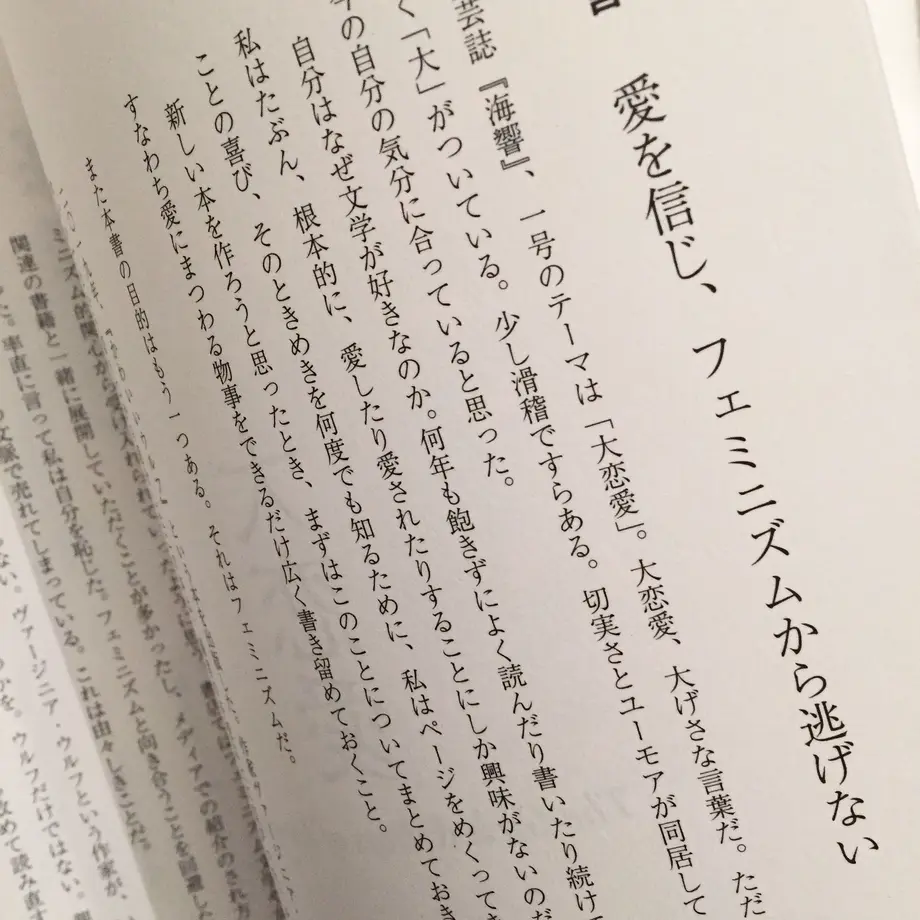 言
愛を信じ、フェミニズムから逃げない
芸誌『海響』、一号のテーマは「大恋愛」。大恋愛、大げさな言葉だ。ただ
く「大」がついている。少し滑稽ですらある。切実さとユーモアが同居して
の自分の気分に合っていると思った。
自分はなぜ文学が好きなのか。何年も飽きずによく読んだり書いたり続けて
私はたぶん、根本的に、愛したり愛されたりすることにしか興味がないのだ
ことの喜び、そのときめきを何度でも知るために、私はページをめくってき
新しい本を作ろうと思ったとき、まずはこのことについてまとめておき
すなわち愛にまつわる物事をできるだけ広く書き留めておくこと。
また本書の目的はもう一つある。それはフェミニズムだ。
ミニズム的関心から受け入れられていったように思
関連の書籍と一緒に展開していただくことが多かったし、メディアでの紹介のされ方
率直に言って私は自分を恥じた。フェミニズムと向き合うことを回避した
の文脈で売れてしまっている。これは由々しきことだ。
ない。ヴァージニア・ウルフという作家が、
ウルフだけではない。
めて読み直す